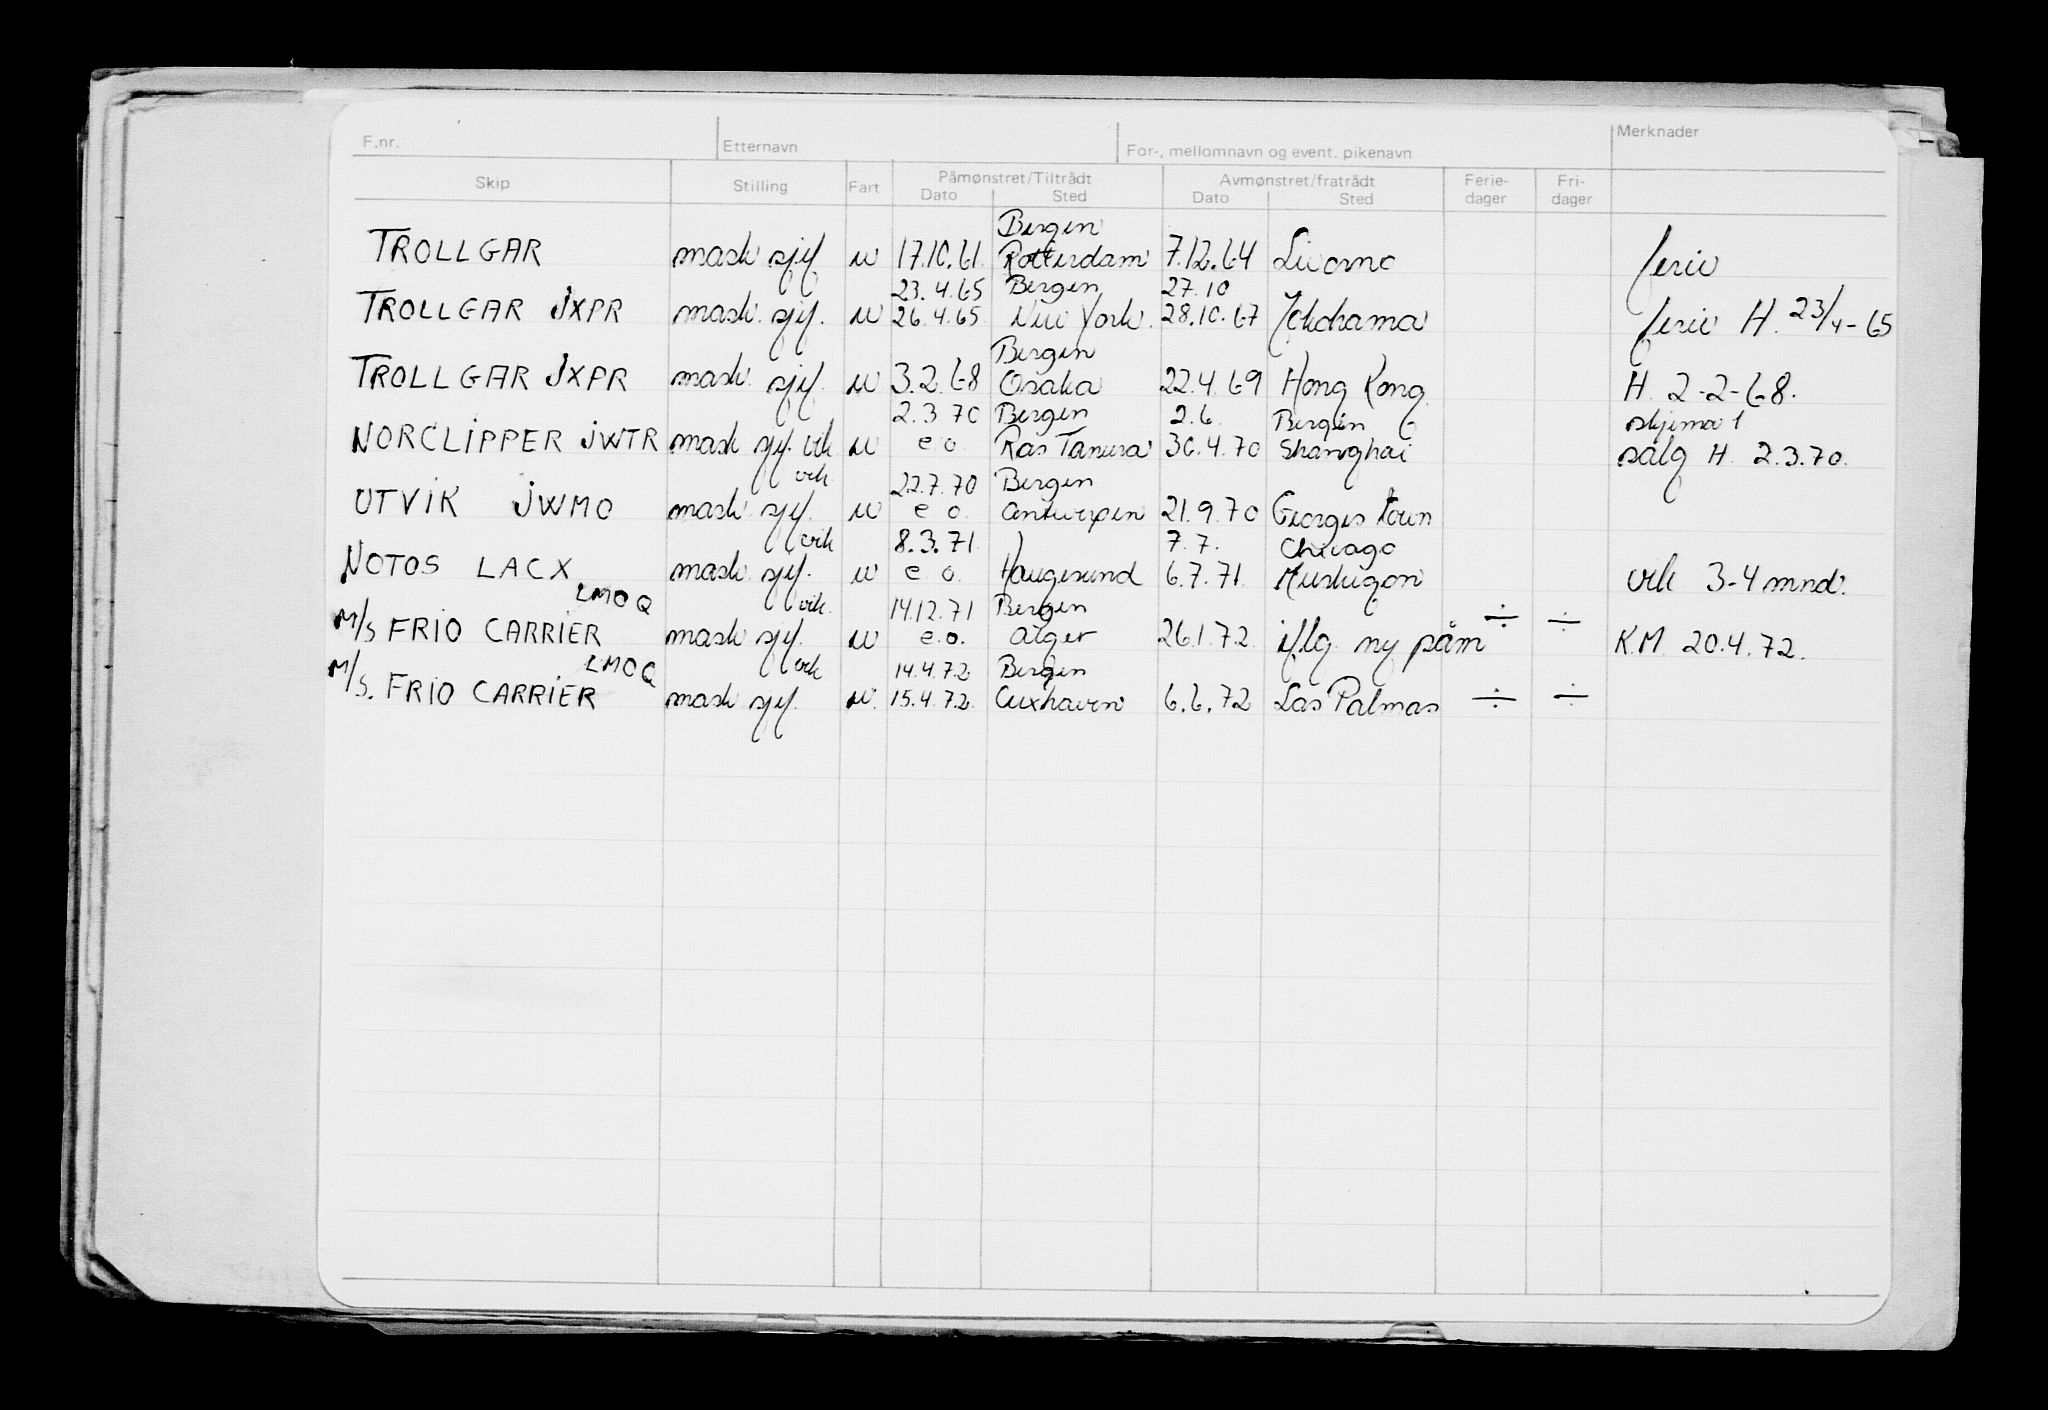 F.nr. Etternavn For-, mellomnavn og event. pikenavn Merknader
Skip Stilling Fart Påmønstret/Tiltrådt Avmønstret/fratrådt Ferie- Fri-
Dato Sted Dato Sted dager dager
Bergen
TROLLGAR mask sjef u 17.10.61. Rotterdam 7.12.64 Livorno ferie
23.4.65 Bergen 27.10
TROLLGAR JXPR mask. sjef. u 26.4.65. New York. 28.10.67 Yokohama ferie H. 23/4-65
Bergen
TROLLGAR JXPR mask. sjef. u 3.2.68 Osaka 22.4.69 Hong Kong H. 2-2-68.
2.3.70 Bergen 2.6. Bergen skjema 1
NORCLIPPER JWTR mask sjef. vik u e.o. Ras Tanura 30.4.70 Shanghai salg H. 2.3.70.
vik. 22.7.70 Bergen
UTVIK JWMO mask. sjef. u e.o. Antwerpen 21.9.70 Georges Town
vik 8.3.71. 7.7. Chicago
NOTOS LACX mask. sjef. u e.o. Haugesund 6.7.71. Muskegon vik 3-4 mnd.
LMOQ vik. 14.12.71 Bergen
M/S FRIO CARRIER mask sjef. u e.o. Alger 26.1.72. iflg. ny påm ÷ ÷ KM 20.4.72.
LMOQ vik 14.4.72 Bergen
M/S. FRIO CARRIER mask sjef. u. 15.4.72. Cuxhaven 6.6.72 Las Palmas ÷ ÷